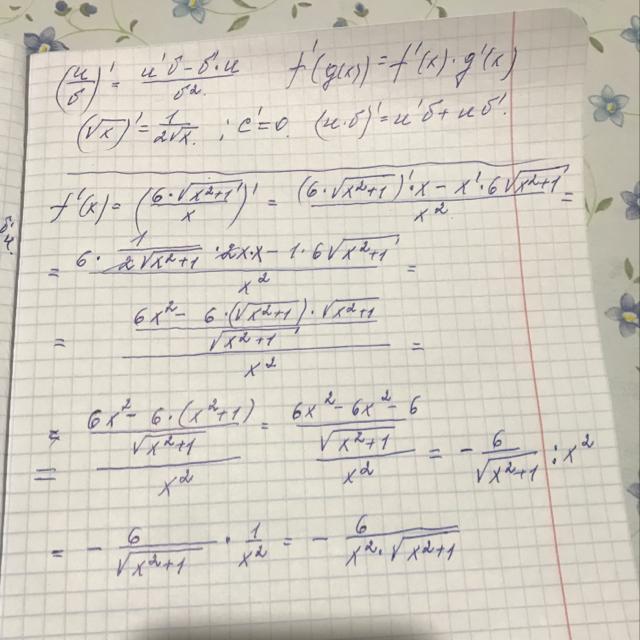 (u/б)' = (u'б - б'·u)/б² f'(g(x)) = f'(x)·g'(x)
(√x)' = 1/(2√x) ; c' = 0. (u·б)' = u'б + uб'.
б'
u.
f'(x) = (6·√(x²+1)/x)' = ((6·√(x²+1))'·x - x'·6√(x²+1))/x² =
= (6·1/(2√(x²+1))·2x·x - 1·6√(x²+1))/x² =
= ((6x² - 6·(√(x²+1))·√(x²+1))/√(x²+1))/x² =
= ((6x² - 6·(x²+1))/√(x²+1))/x² = ((6x² - 6x² - 6)/√(x²+1))/x² = - 6/√(x²+1) : x²
= - 6/√(x²+1) · 1/x² = - 6/(x²·√(x²+1))